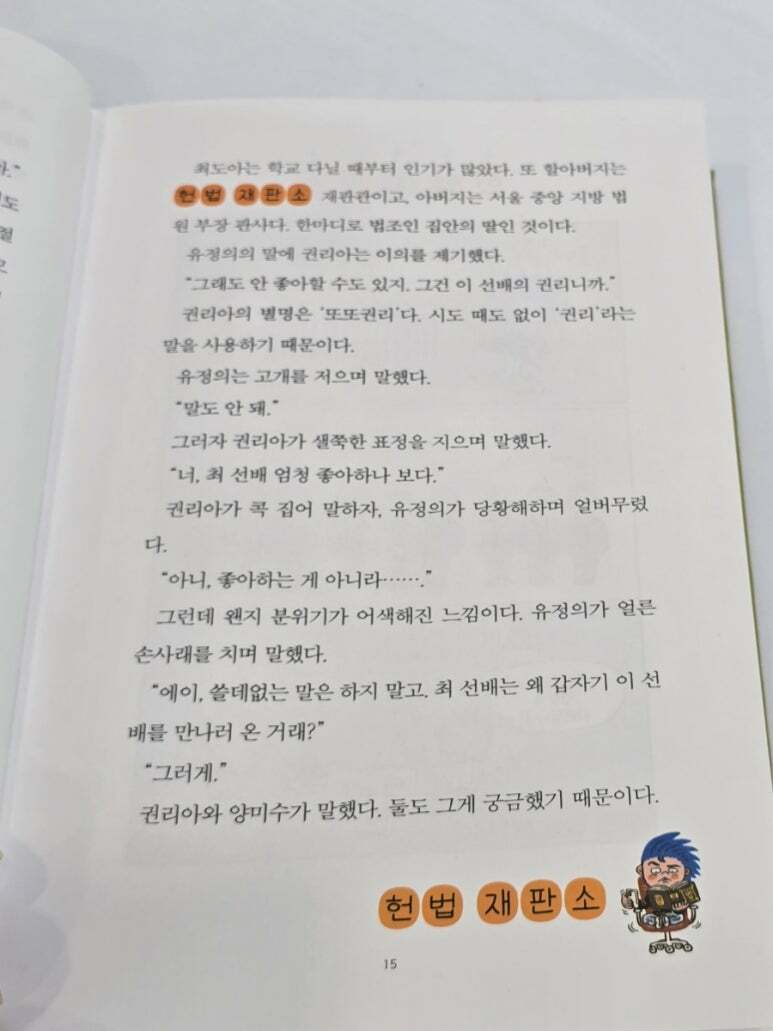 최도아는 학교 다닐 때부터 인기가 많았다. 또 할아버지는
헌법 재판소 재판관이고, 아버지는 서울 중앙 지방 법
원 부장 판사다. 한마디로 법조인 집안의 딸인 것이다.
유정의의 말에 권리아는 이의를 제기했다.
“그래도 안 좋아할 수도 있지. 그건 이 선배의 권리니까.”
권리아의 별명은 ‘또또권리’다. 시도 때도 없이 ‘권리’라는
말을 사용하기 때문이다.
유정의는 고개를 저으며 말했다.
“말도 안 돼.”
그러자 권리아가 샐쭉한 표정을 지으며 말했다.
“너, 최 선배 엄청 좋아하나 보다.”
권리아가 콕 집어 말하자, 유정의가 당황해하며 얼버무렸
다.
“아니, 좋아하는 게 아니라…….”
그런데 왠지 분위기가 어색해진 느낌이다. 유정의가 얼른
손사래를 치며 말했다.
“에이, 쓸데없는 말은 하지 말고. 최 선배는 왜 갑자기 이 선
배를 만나러 온 거래?”
“그러게.”
권리아와 양미수가 말했다. 둘도 그게 궁금했기 때문이다.
헌법 재판소
15